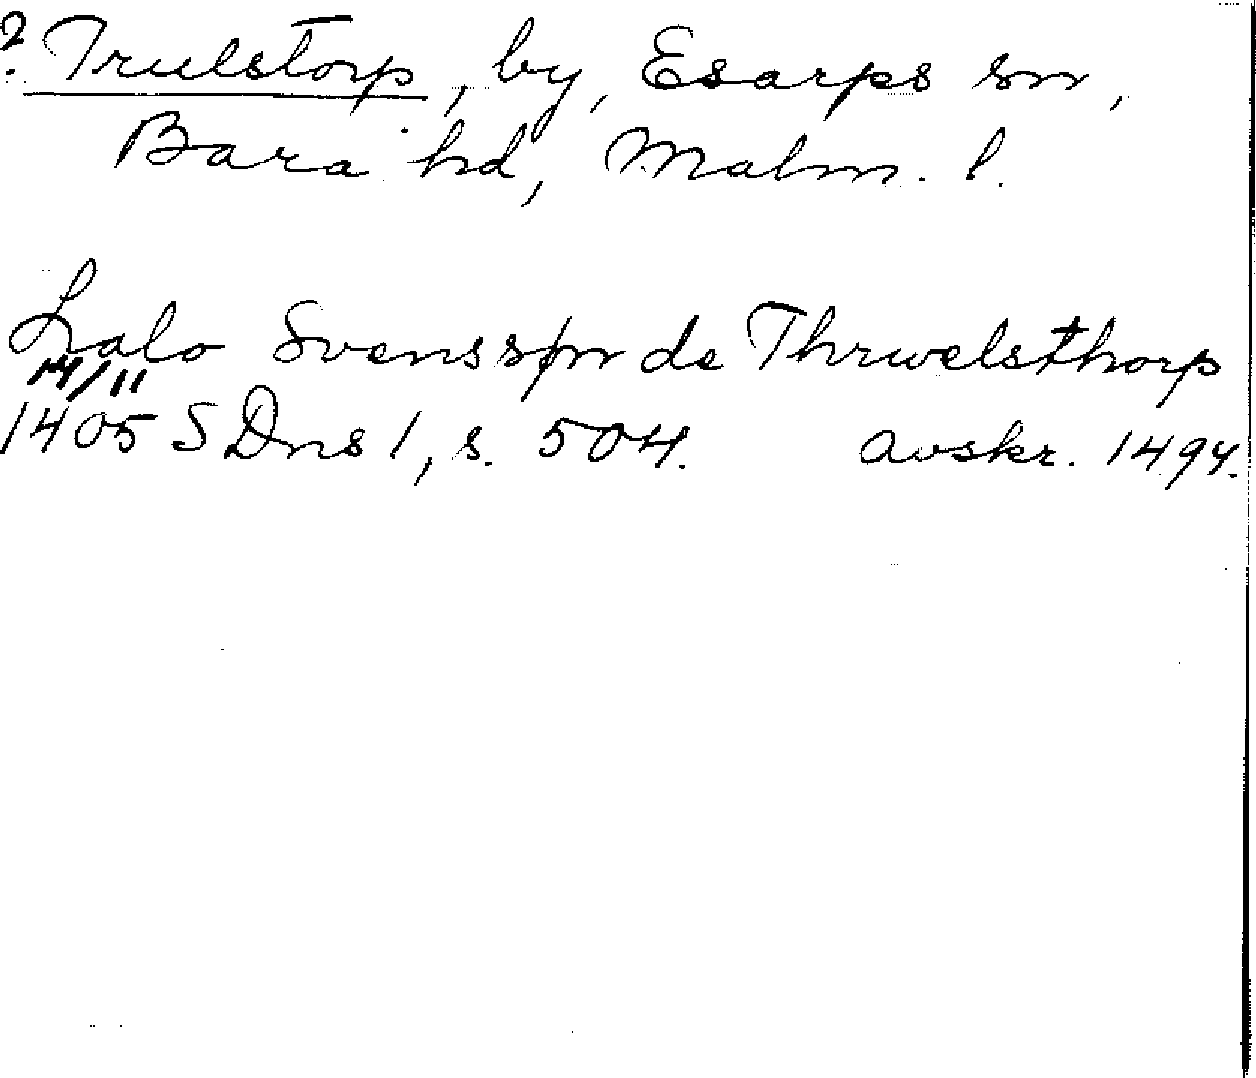 ? Trulstorp, by, Esarps sn,
Bara hd, Malm. l.
Lalo Svensspn de Thrwelsthorp
14/11
1405 SDns 1, s. 504. avskr. 1494.